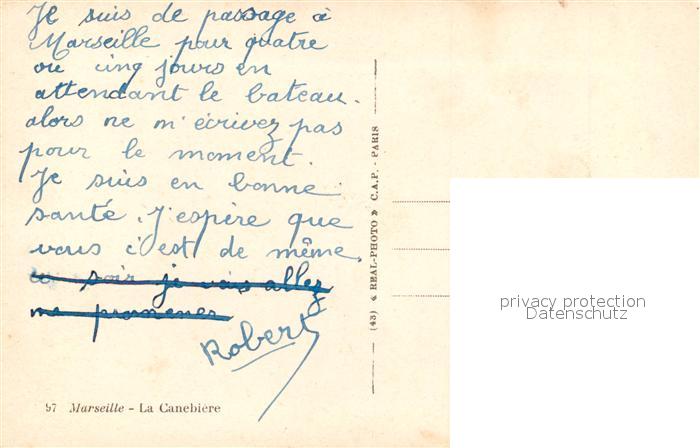 Je suis de passage à
Marseille pour quatre
ou cinq jours en
attendant le bateau.
alors ne m'écrivez pas
pour le moment.
Je suis en bonne
santé. J'espère que
vous c'est de même.
ce soir je vais allez
me promener
Robert
97 Marseille - La Canebière
(43) « REAL-PHOTO » C.A.P. - PARIS
privacy protection
Datenschutz